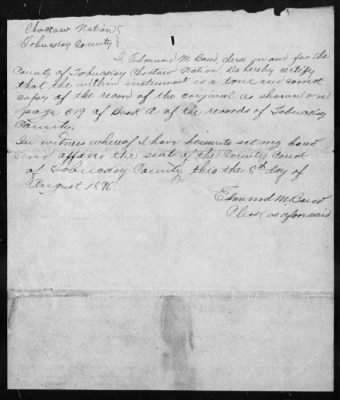 Choctaw Nation }
Tobucksy County }
I, Edmund M. Bond, clerk in and for the
County of Tobucksy Choctaw Nation, do hereby certify
that the within instrument is a true and correct
copy of the record of the original as shown on
page 319 of Book A of the records of Tobucksy
County.
In witness whereof I have hereunto set my hand
and affixed the seal of the County Court
of Tobucksy County, this the 8th day of
August 1896.
Edmund M. Bond
Clerk as aforesaid